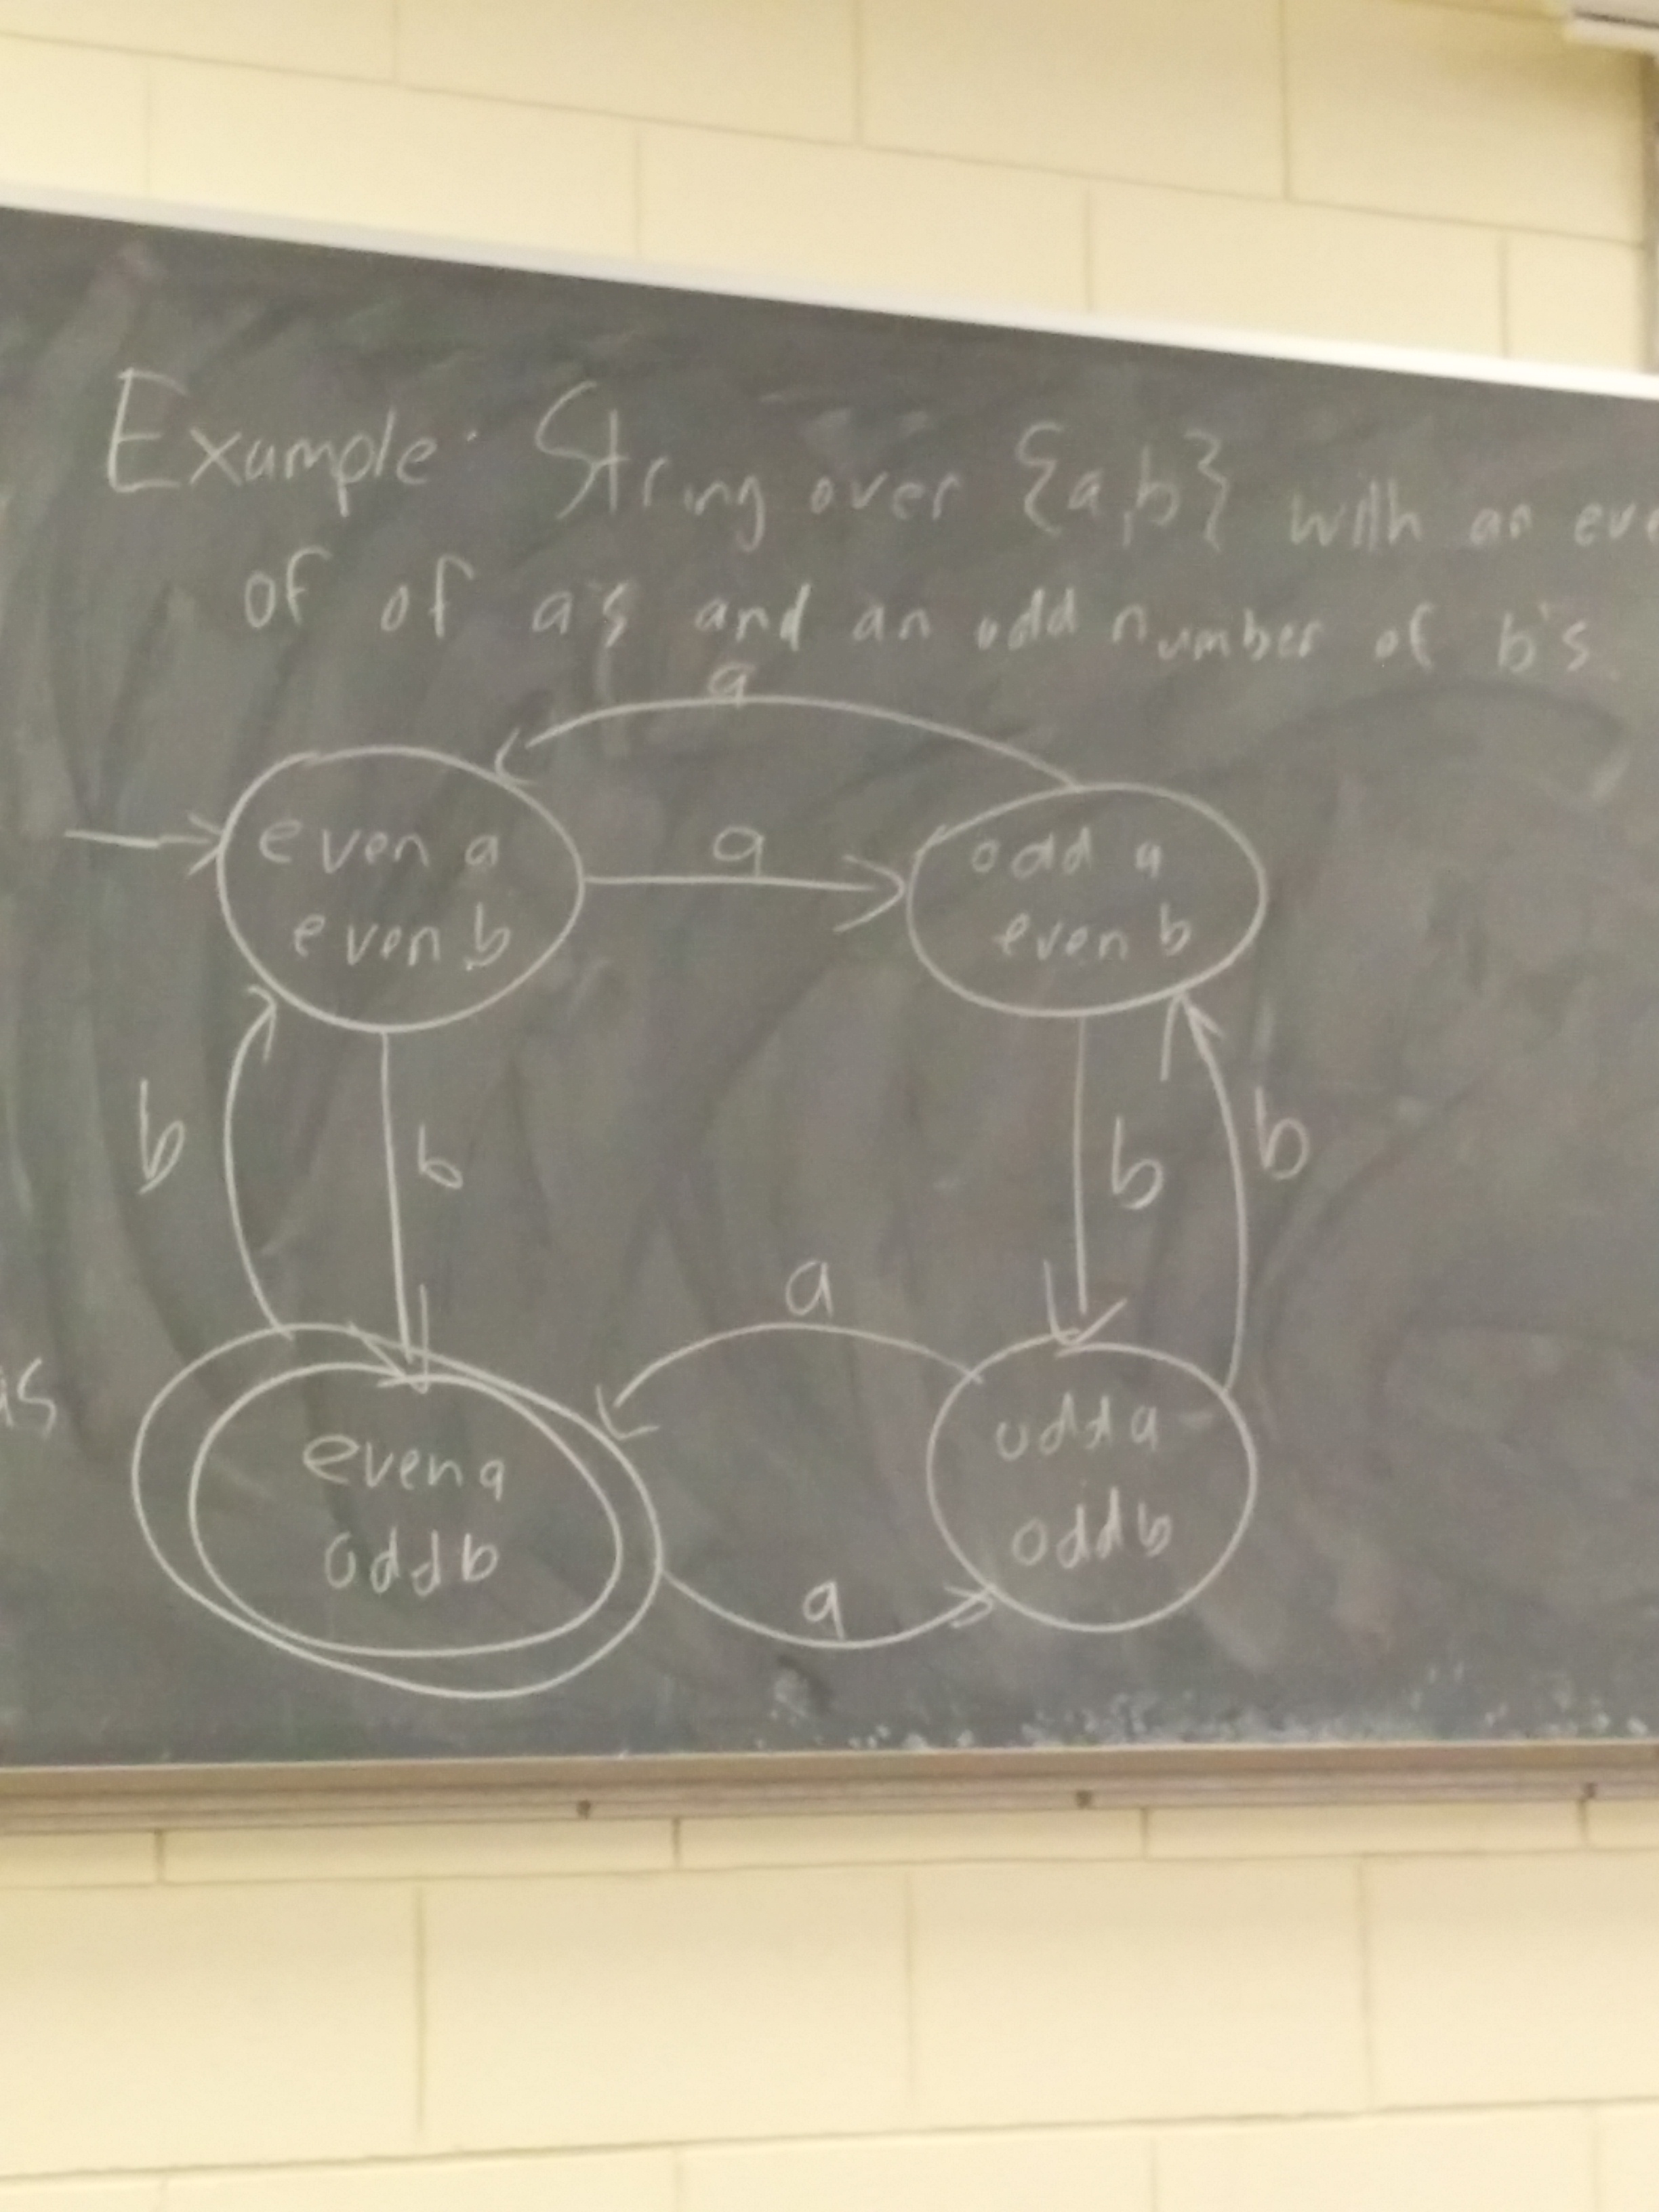 Example: String over {a,b} with an eve
of of a's and an odd number of b's.
a
even a
even b
a
odd a
even b
b
b
b
b
as
a
even a
odd b
odd a
odd b
a